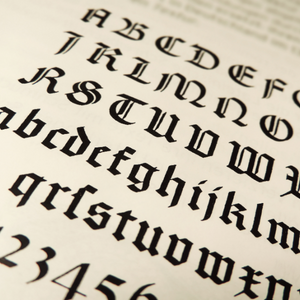 ABCDEFG
JKLMNO
RSTUVWX
abcdefghijklm
qrſstuvwxn
123456